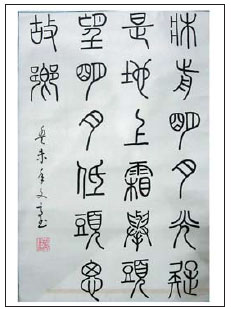 牀前明月光疑
是地上霜舉頭
望明月低頭思
故鄉
未年文